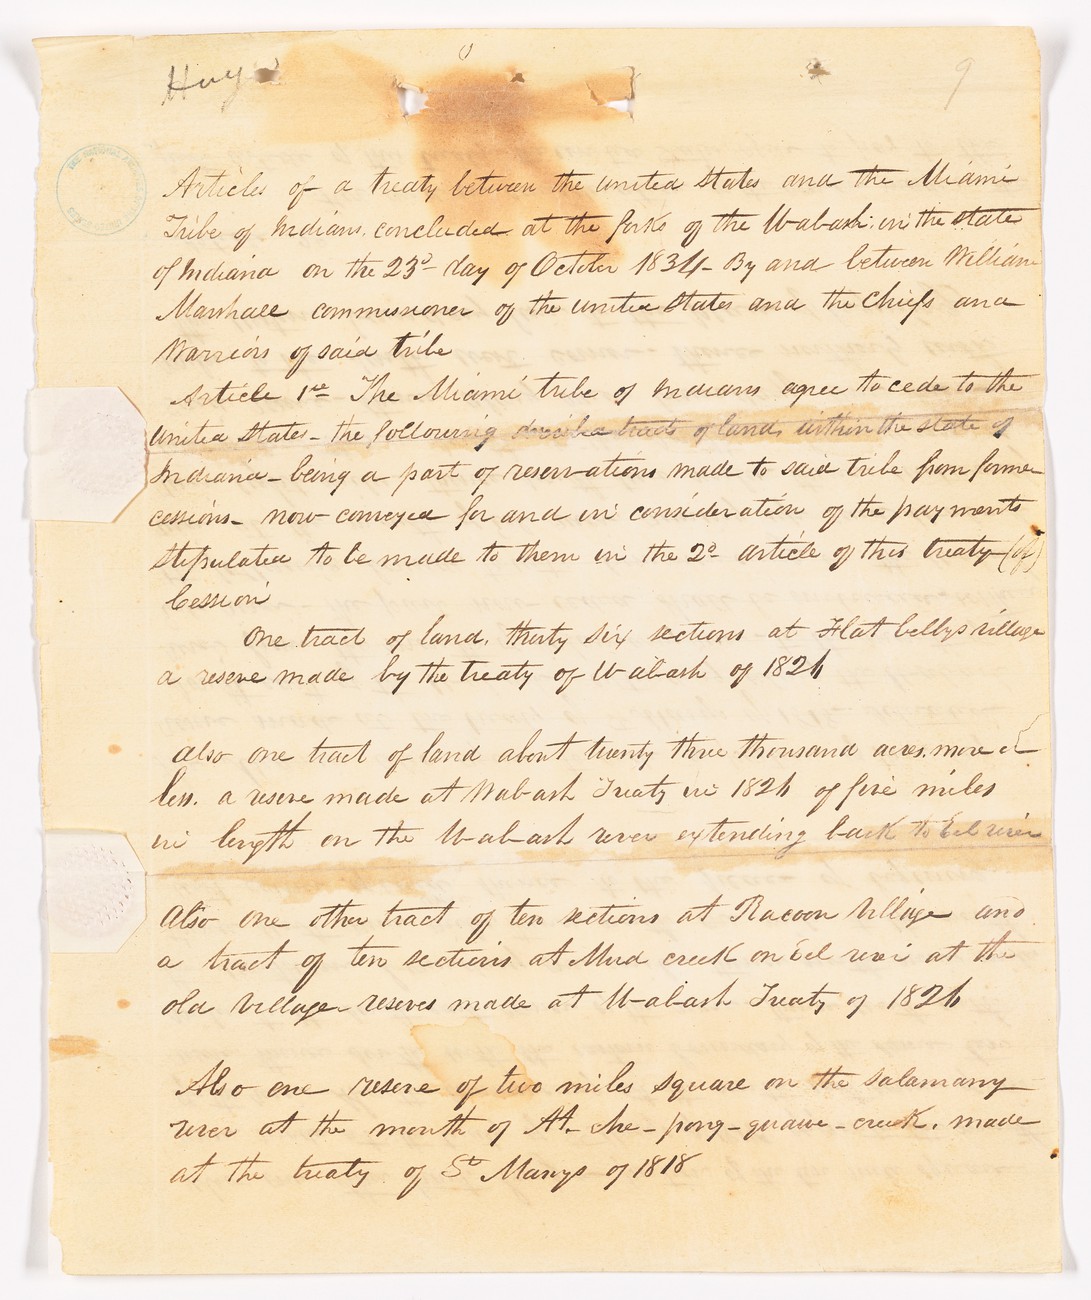 9
Articles of a treaty between the united States and the Miami
Tribe of Indians, concluded at the forks of the Wabash, in the state
of Indiana on the 23d day of October 1834 - By and between William
Marshall commissioner of the united States and the Chiefs and
Warriors of said tribe
Article 1st The Miami tribe of Indians agree to cede to the
united States - the following tracts of land, within the state of
Indiana - being a part of reservations made to said tribe from former
cessions - now conveyed for and in consideration of the payments
stipulated to be made to them in the 2d article of this treaty (of)
Cession
One tract of land, thirty six sections at Flat bellys village
a reserve made by the treaty of Wabash of 1826
Also one tract of land about twenty three thousand acres, more or
less. a reserve made at Wabash Treaty in 1826 of five miles
in length on the Wabash river extending back to Eel river
Also one other tract of ten sections at Racoon Village and
a tract of ten sections at Mud creek on Eel river at the
old village - reserves made at Wabash Treaty of 1826
Also one reserve of two miles square on the salamany
river at the mouth of At-che-pong-quawe-creek, made
at the treaty of St Marys of 1818